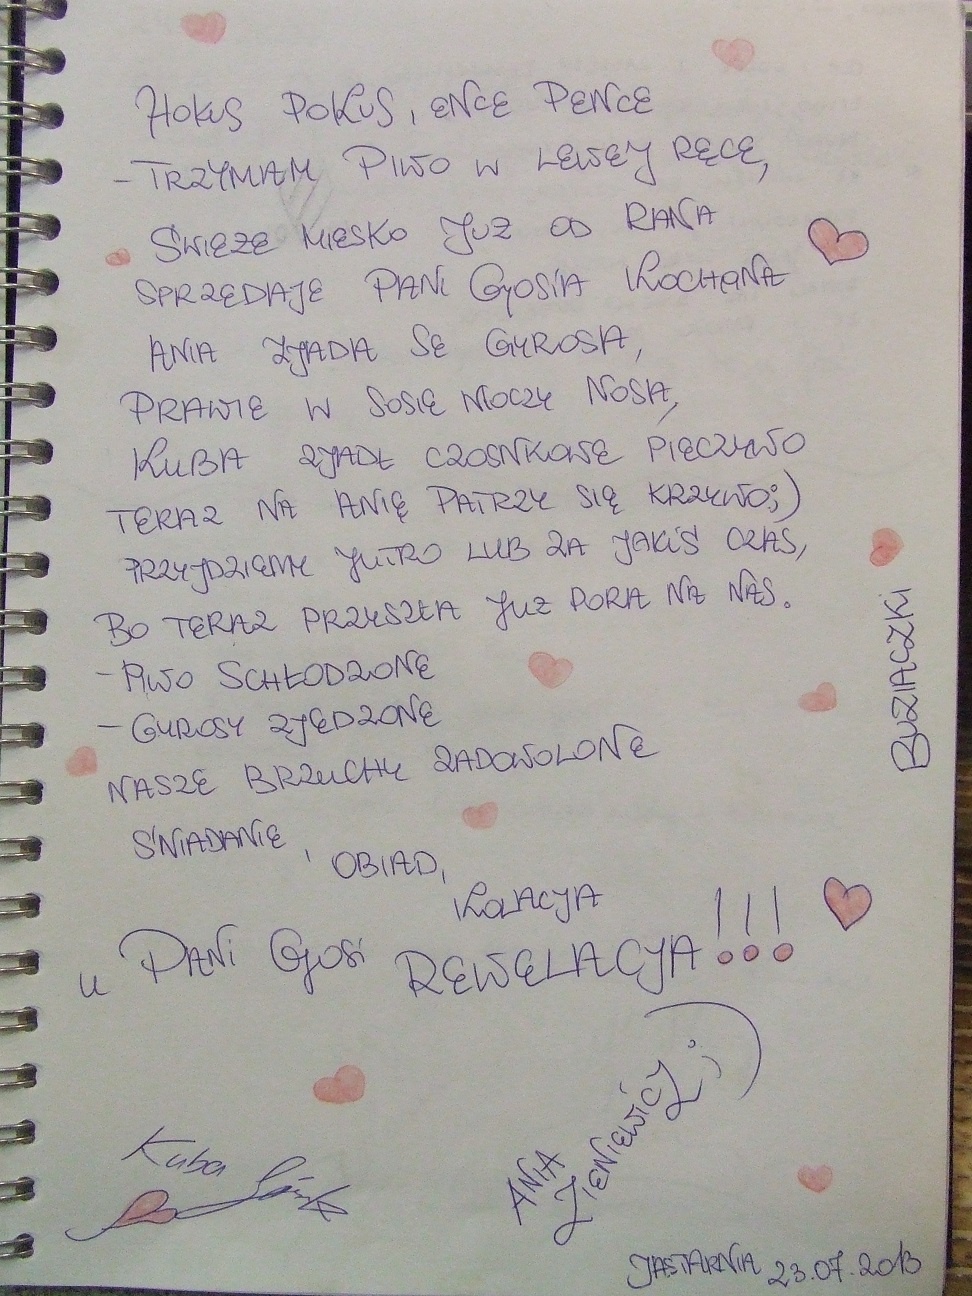 HOKUS POKUS, ENCE PENCE
- TRZYMAM PIWO W LEWEY RĘCE,
ŚWIEŻE MIĘSKO JUŻ OD RANA
SPRZEDAJE PANI GOSIA KOCHANA
ANIA ZJADA SE GYROSA,
PRAWIE W SOSIE MOCZY NOSA,
KUBA ZJADŁ CZOSNKOWE PIECZYWO
TERAZ NA ANIĘ PATRZY SIĘ KRZYWO ;)
PRZYJDZIEMY JUTRO LUB ZA JAKIŚ CZAS,
BO TERAZ PRZYSZŁA JUŻ PORA NA NAS.
- PIWO SCHŁODZONE
- GYROSY ZJEDZONE
NASZE BRZUCHY ZADOWOLONE
ŚNIADANIE, OBIAD,
KOLACJA
u PANi GOSi REWELACJA!!!
BUZIACZKI
Kuba
ANIA
ZIENIEWICZ ;)
JASTARNIA 23.07.2013